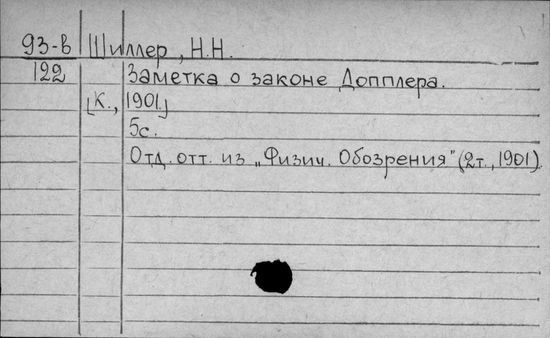 93-в Шиллер, Н.Н.
122 Заметка о законе Допплера.
[К., 1901.]
5с.
Отд. отт. из „Физич. Обозрения" (2т., 1901).